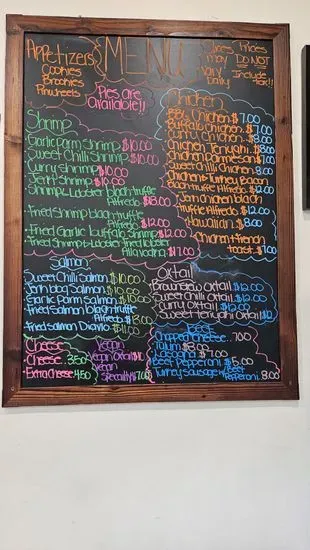 Appetizers
Cookies
Brownies
Pinwheels
MENU
Prices
may
Vary
Daily
Prices
DO NOT
Include
tax!!
Pies are
available!!
Shrimp
Garlic Parm Shrimp $10.00
Sweet Chilli Shrimp $10.00
Curry Shrimp $10.00
Jerk Shrimp $10.00
Shrimp & Lobster black truffle
Alfredo $18.00
Fried Shrimp black truffle
Alfredo $12.00
Fried Garlic buffalo Shrimp $12.00
Fried Shrimp & Lobster fried lobster
$17.00
Chicken
BBQ Chicken $7.00
Buffalo Chicken $7.00
Curry Chicken $8.00
Chicken Teriyaki $8.00
Chicken Parmesan $7.00
Sweet Chilli Chicken $8.00
Chicken & Turkey Bacon
Black truffle Alfredo $12.00
Jerk Chicken black
truffle Alfredo $12.00
Hawaiian $8.00
Chicken & French
toast $7.00
Salmon
Sweet Chilli Salmon $10.00
Jerk BBQ Salmon $10.00
Garlic Parm Salmon $10.00
Fried Salmon black truffle
Alfredo $
Fried Salmon Diavlo $11.00
Oxtail
Brown Stew Oxtail $12.00
Sweet Chilli Oxtail $12.00
Curry Oxtail $12.00
Sweet Teriyaki Oxtail $12
Cheese
Cheese 3.50
Extra Cheese 4.50
Vegan
Vegan Oxtail $10
Vegan
Specialty $7.00
Beef
Chopped Cheese 7.00
Taium $8.00
Lasagna $7.00
Beef Pepperoni $5.00
Turkey Sausage w/ Beef
Pepperoni 8.00